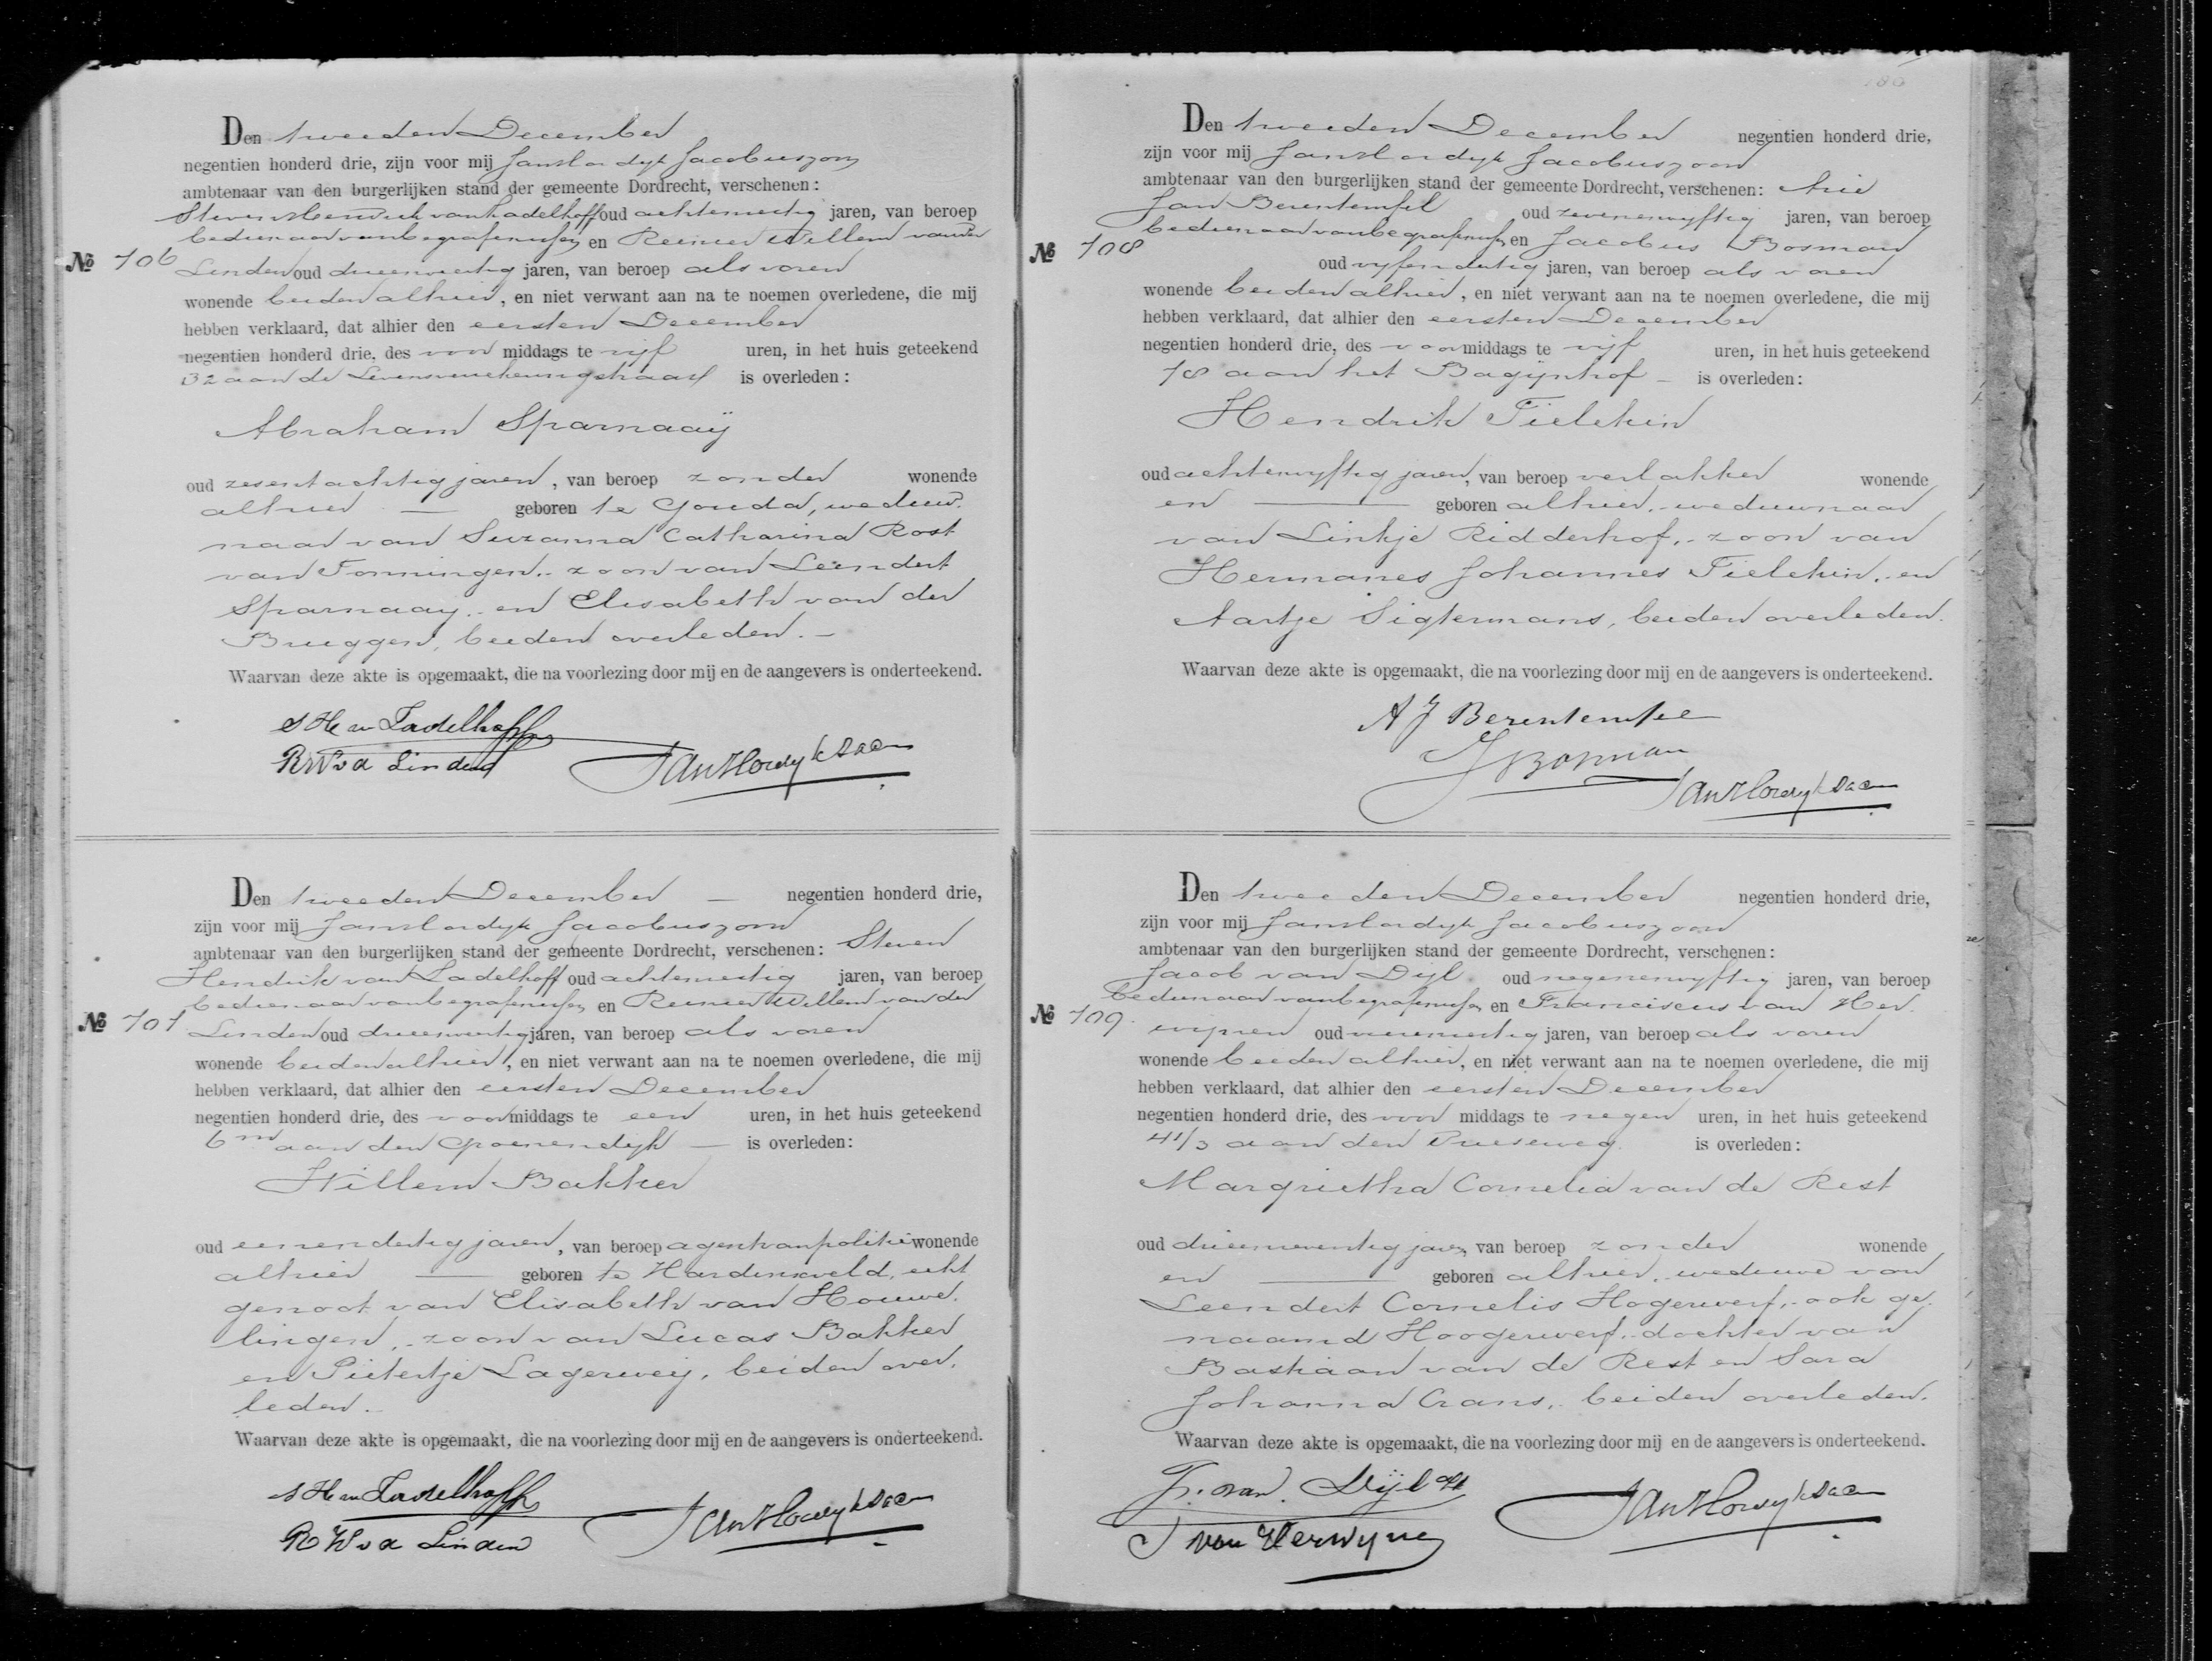 Den tweeden December
negentien honderd drie, zijn voor mij Jan Hordijk Jacobuszoon
ambtenaar van den burgerlijken stand der gemeente Dordrecht, verschenen:
Steven Hendrik van Ladelhoff oud achtenveertig jaren, van beroep
bedienaar van begrafenissen en Reinier Willem van der
No 706 Linden oud drieenveertig jaren, van beroep als voren
wonende beiden alhier, en niet verwant aan na te noemen overledene, die mij
hebben verklaard, dat alhier den eersten December
negentien honderd drie, des voor middags te vijf uren, in het huis geteekend
32 aan de Levensverzekeringstraat is overleden:
Abraham Sparnaaij
oud zesentachtig jaren, van beroep zonder wonende
alhier — geboren te Gouda, weduw-
naar van Suzanna Catharina Rost
van Tonningen, zoon van Leendert
Sparnaay, en Elisabeth van der
Bruggen, beiden overleden. —
Waarvan deze akte is opgemaakt, die na voorlezing door mij en de aangevers is onderteekend.
S H van Ladelhoff
R W v d Linden Jan Hordijk Jaczn
Den tweeden December — negentien honderd drie,
zijn voor mij Jan Hordijk Jacobuszoon
ambtenaar van den burgerlijken stand der gemeente Dordrecht, verschenen: Steven
Hendrik van Ladelhoff oud achtenveertig jaren, van beroep
bedienaar van begrafenissen en Reinier Willem van der
No 707 Linden oud drieenveertig jaren, van beroep als voren
wonende beiden alhier, en niet verwant aan na te noemen overledene, die mij
hebben verklaard, dat alhier den eersten December
negentien honderd drie, des voormiddags te een uren, in het huis geteekend
6 aan den Groenendijk — is overleden:
Willem Bakker
oud eenendertig jaren, van beroep agent van politie wonende
alhier — geboren te Hardinxveld, echt
genoot van Elisabeth van Houwe-
lingen, zoon van Lucas Bakker
en Pietertje Lagerweij, beiden over-
leden.
Waarvan deze akte is opgemaakt, die na voorlezing door mij en de aangevers is onderteekend.
S H van Ladelhoff
R W v d Linden Jan Hordijk Jaczn
180
Den tweeden December negentien honderd drie,
zijn voor mij Jan Hordijk Jacobuszoon
ambtenaar van den burgerlijken stand der gemeente Dordrecht, verschenen: Arie
Jan Berentemfel oud zevenenvyftig jaren, van beroep
bedienaar van begrafenissen en Jacobus Bosman
No 708 oud vyfendertig jaren, van beroep als voren
wonende beiden alhier, en niet verwant aan na te noemen overledene, die mij
hebben verklaard, dat alhier den eersten December
negentien honderd drie, des voormiddags te vijf uren, in het huis geteekend
18 aan het Bagijnhof — is overleden:
Hendrik Tieleken
oud achtenvyftig jaren, van beroep verlakker wonende
en — geboren alhier, weduwnaar
van Lintje Ridderhof, zoon van
Hermanes Johannes Tieleken, en
Aartje Sigtermans, beiden overleden.
Waarvan deze akte is opgemaakt, die na voorlezing door mij en de aangevers is onderteekend.
A J Berentemfel
J Bosman
Jan Hordijk Jaczn
Den tweeden December negentien honderd drie,
zijn voor mij Jan Hordijk Jacobuszoon
ambtenaar van den burgerlijken stand der gemeente Dordrecht, verschenen:
Jacob van Dijl oud negenenvyftig jaren, van beroep
bedienaar van begrafenissen en Franciscus van Her-
No 709. wijnen oud vierenveertig jaren, van beroep als voren
wonende beiden alhier, en niet verwant aan na te noemen overledene, die mij
hebben verklaard, dat alhier den eersten December
negentien honderd drie, des voor middags te negen uren, in het huis geteekend
41/3 aan den Vrieseweg. is overleden:
Margrietha Cornelia van de Rest
oud drieenzeventig jaren, van beroep zonder wonende
en — geboren alhier, weduwe van
Leendert Cornelis Hogerwerf, ook ge-
naamd Hoogerwerf, dochter van
Bastiaan van de Rest en Sara
Johanna Crans, beiden overleden.
Waarvan deze akte is opgemaakt, die na voorlezing door mij en de aangevers is onderteekend.
J. van Dijl
F van Herwijnen Jan Hordijk Jaczn